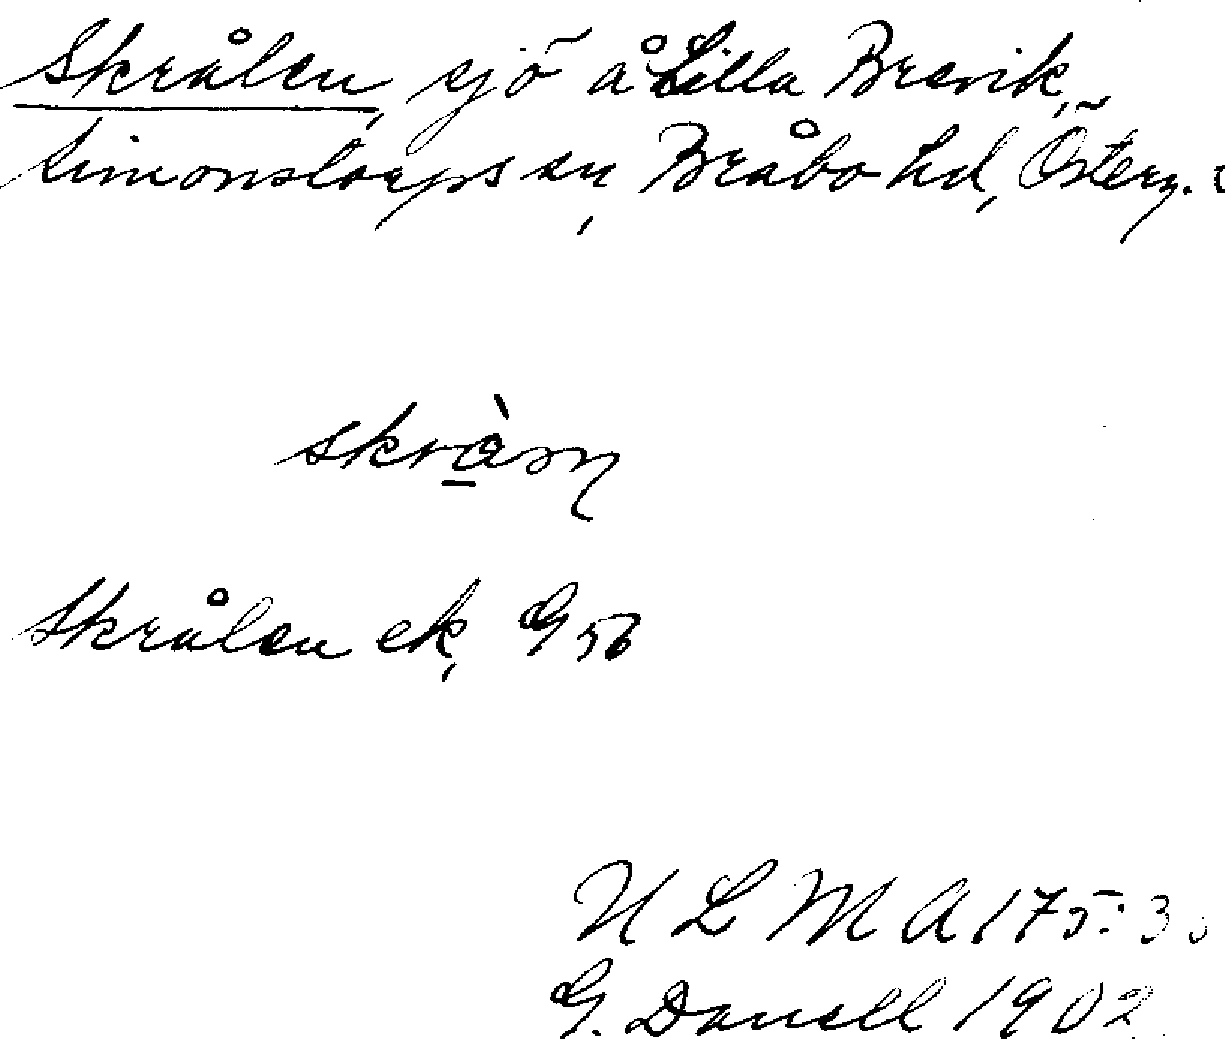 Skrålen, sjö å Lilla Brevik,
Simonstorps sn, Bråbo hd, Österg.
Skrålen ek, G 56
U L M A 175:3
G. Danell 1902